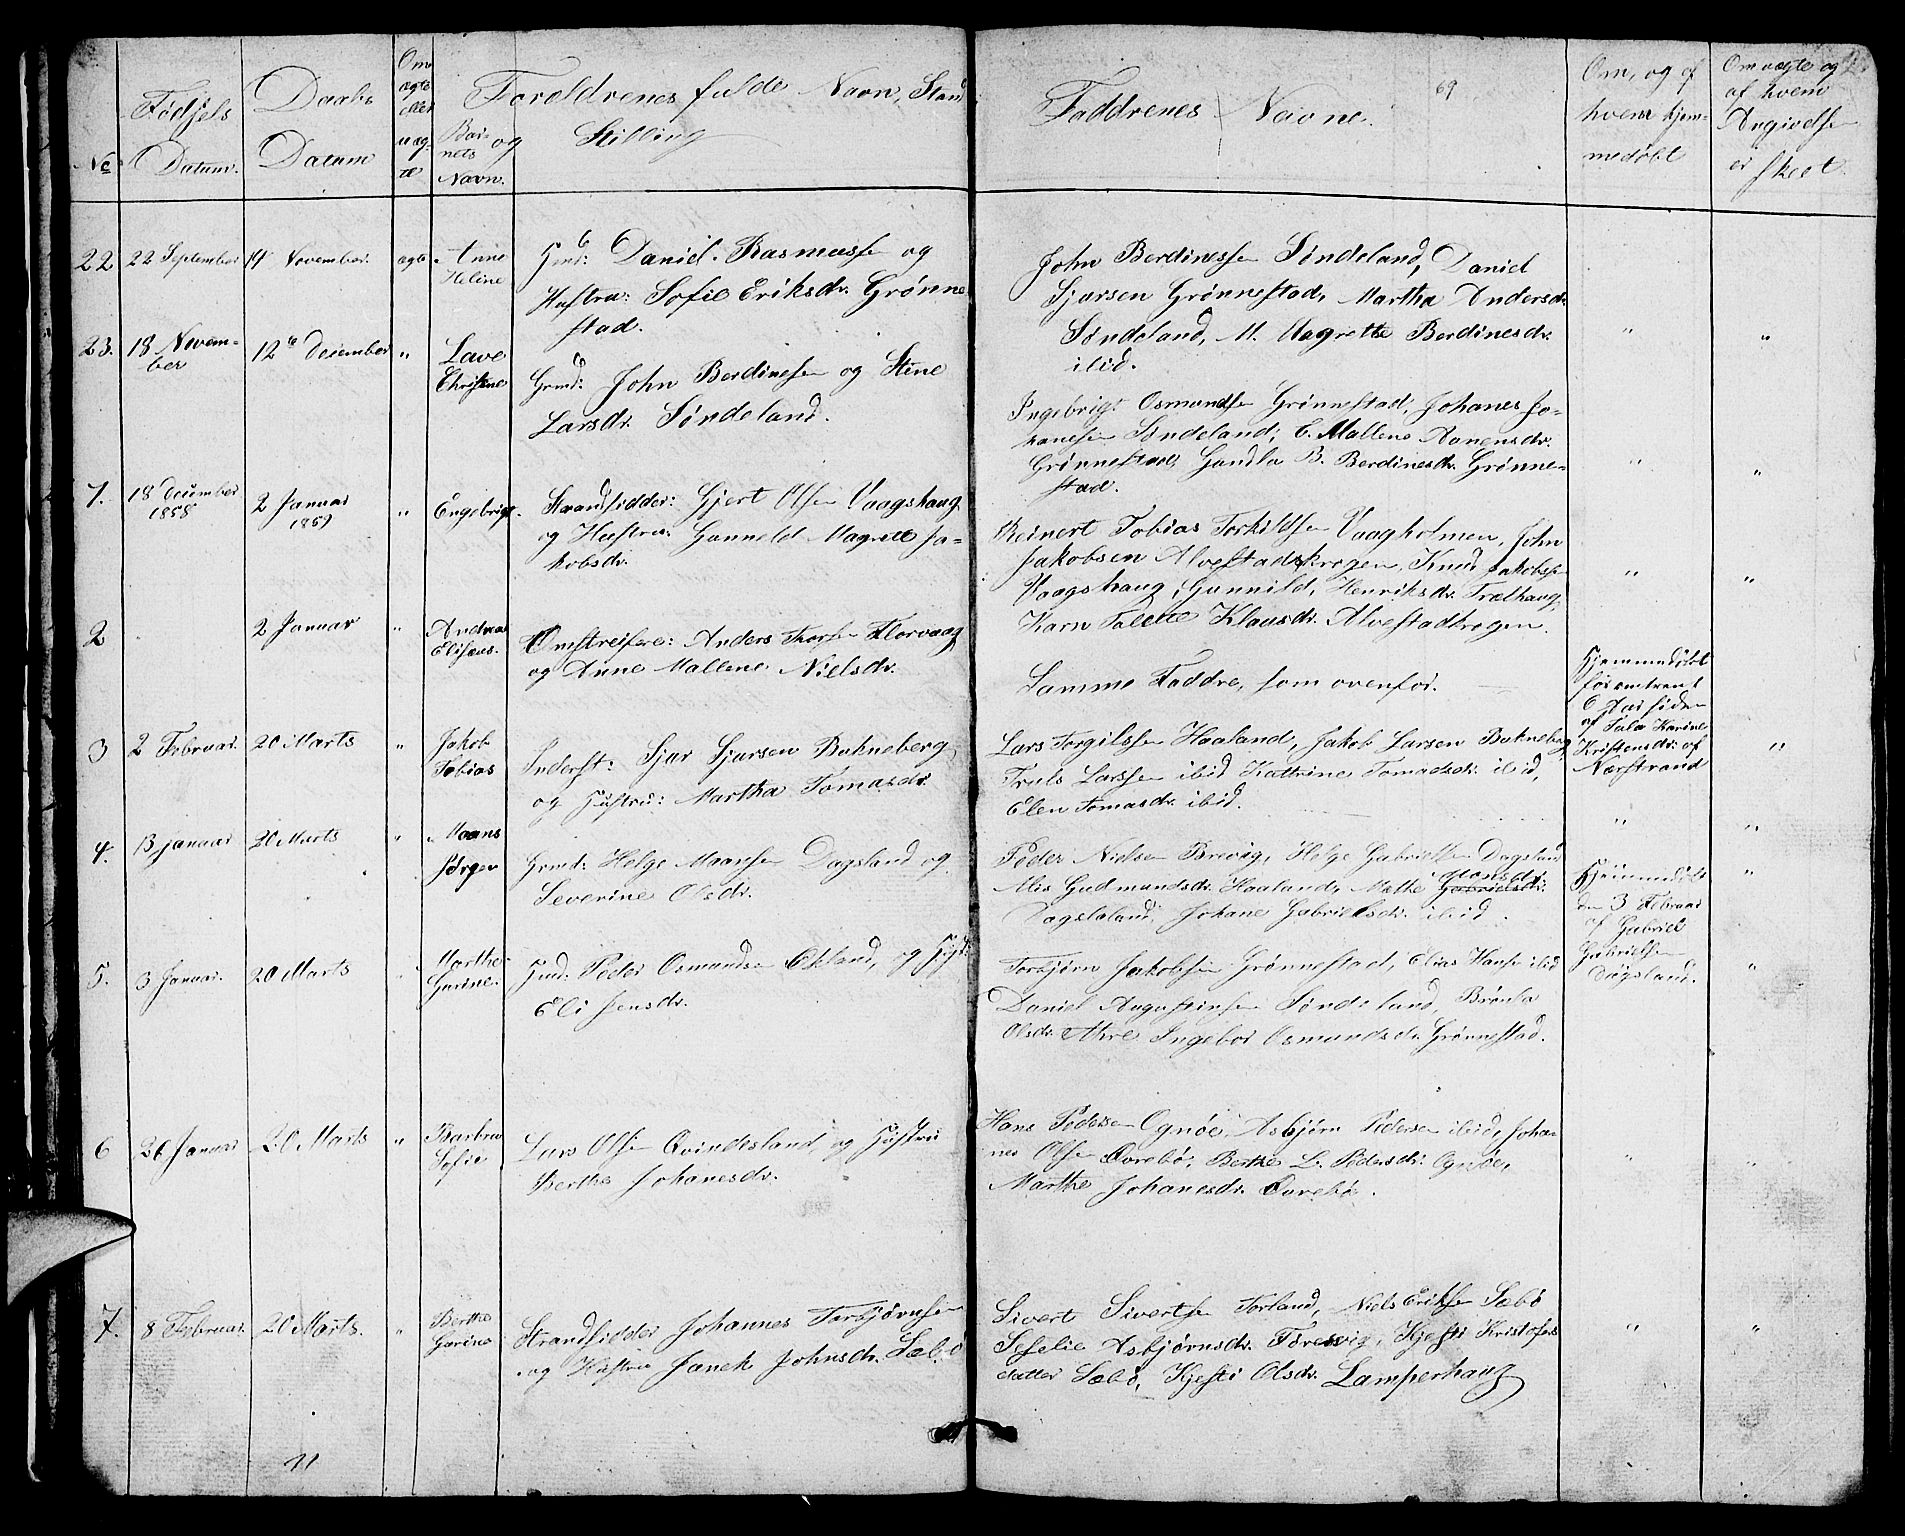 No
Fødsels
Datum.
Daabs
Datum
Om
ægte
eller
uæg-
te
Bar-
nets
Navn.
Foreldrenes fulde Navn, Stand
og Stilling
Faddrenes Navne.
69
Om, og af
hvem hjem-
medøbt
Om uægte og
af hvem
Angivelsen
er skeet.
22 22 September 14 November. ægte Anne
Heline
Gmd: Daniel Rasmussen og
Hustru: Sofie Eriksdr. Grønne
stad.
John Berdinessen Søndeland, Daniel
Sjursen Grønnestad, Martha Andersdr.
Søndeland, M. Magrette Berdinesdr.
ibid.
23. 18 Novem-
ber
12te Desember " Lave
Christine
Grmd: John Berdinesen og Stine
Larsdr. Søndeland.
Ingebrigt Osmundsen Grønnestad, Johanes Jo-
hanesen Søndeland, E. Mallene Aanensdr.
Grønnestad, Gundla B. Berdinesdr. Grønne-
stad.
1. 18 Desember
1858
2 Januar
1859
" Engebrigt.
Strandsidder: Gjert Olsen Vaagshaug
og Hustru: Gunneld Magrete Ja-
kobsdr.
Reinert Tobias Torkildsen Vaagholmen, John
Jakobsen Alvestadkrogen, Knud Jakobsen
Vaagshaug, Gunnild Henriksdr. Trælhaug,
Karn Talette Klausdr. Alvestadkrogen.
2 2 Januar " Andreas
Elisæus.
Omstreifere: Anders Thorsen Florvaag
og Anne Mallene Nielsdr.
Samme Faddre, som ovenfor.
Hjemmedøbt
for omtrent
6 Aar siden
af Tala Karine
Kristensdr. af
Nærstrand
3 2 Februar. 20 Marts " Jakob
Tobias
Inderst: Sjur Sjursen Bokneberg
og Hustru: Martha Tomasdr.
Lars Torgilssen Haaland, Jakob Larsen Bokneberg
Truls Larssen ibid Kattrine Tomasdr. ibid,
Elen Tomasdr. ibid.
4. 13 januar 20 Marts " Maans
Jørgen
Grmd: Helge Maansen Dagsland og
Severine Olsdr.
Peder Nielsen Brevig, Helge Gabrielsen Dagsland
Alis Gudmundsdr. Haaland, Malke Gabrielsdr.
Monsdr.
Dagslaland, Johane Gabrielsdr. ibid.
Hjemmedøbt
den 3 Februar
af Gabriel
Gabrielsen
Dagsland.
5. 3 Januar. 20 Marts Marthe
Gurine.
Gmd: Peder Osmundsen Økland, og Hust:
Eli Jensdr.
Torbjørn Jakobsen Grønnestad, Elias Hansen ibid
Daniel Augustinsen Søndeland, Brønla
Olsdr. Ahre Ingebor Osmundsdr. Grønnestad.
6 26 Januar 20 Marts " Barbra
Sofie
Lars Olsen Qvindesland og Hustru
Berthe Johanesdr.
Hans Pedersen Ognøe, Asbjørn Pedersen ibid, Joha-
nes Olsen Øvrebø, Berthe L. Pedersdr. Ognøe,
Marthe Johanesdr. Øvrebø.
7. 8 Februar. 20 Marts. " Berthe
Gurine
Strandsidder Johannes Torbjørnsen
og Hustru Janek Johnsdr. Sæbø
Sivert Sivertsen Torland, Niels Eriksen Sæbø
Seselie Asbjørnsdr. Toresvig, Kjesti Kristofers
datter Sæbø, Kjesti Olsdr. Lamperhaug
11